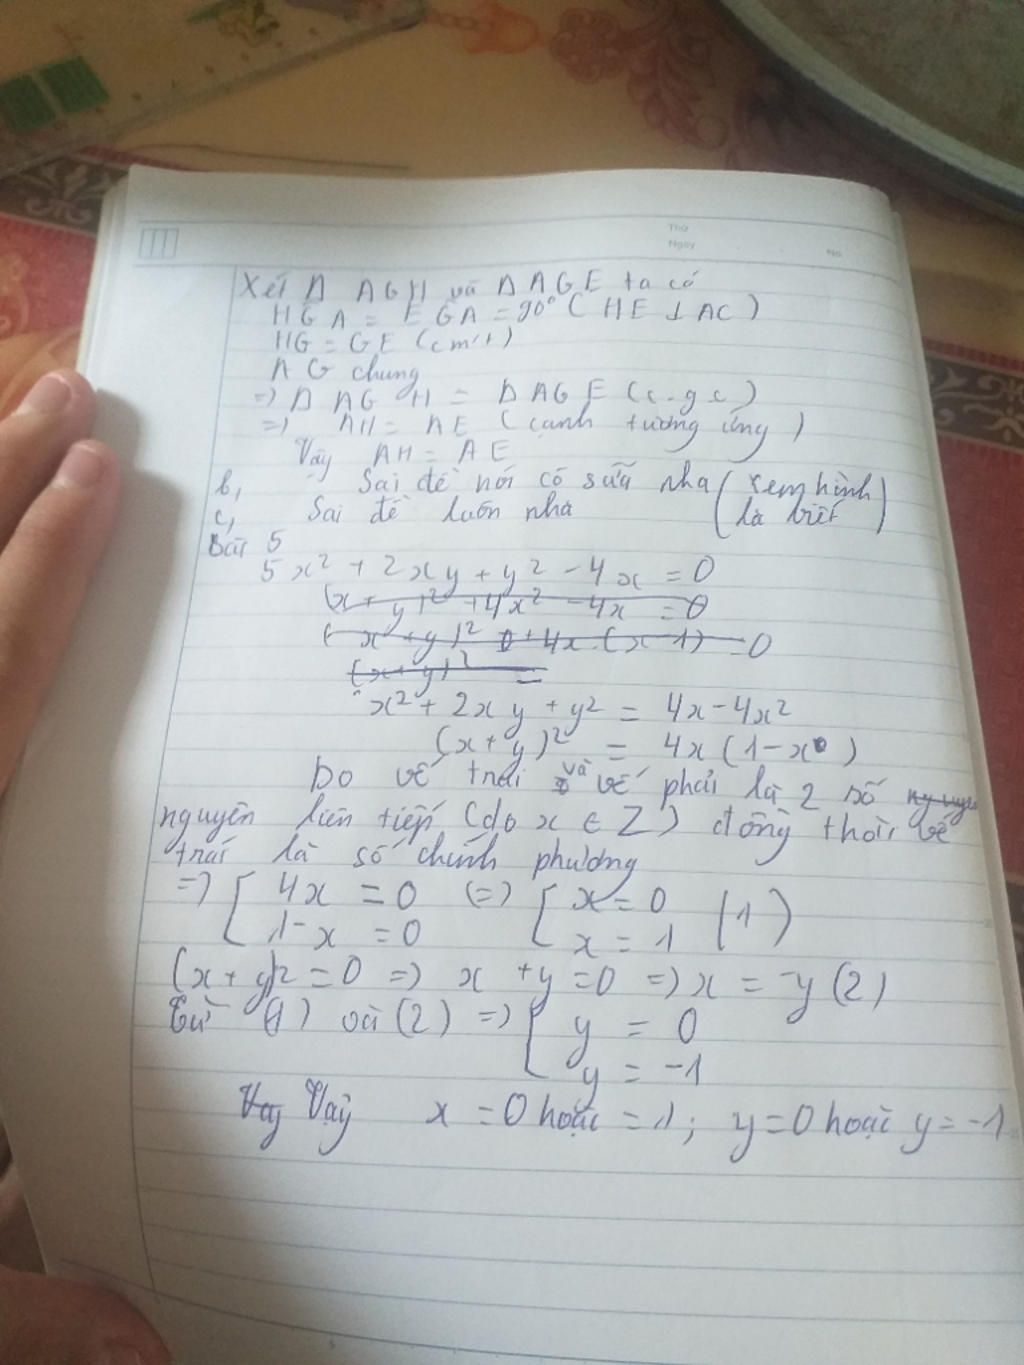 Thứ
Ngày
No.
Xét Δ AGH và Δ AGE ta có
HGA = EGA = 90° ( HE ⊥ AC )
HG = GE (cmt)
AG chung
=> Δ AG H = Δ AGE (c.g c)
=> AH = AE (cạnh tương ứng)
Vậy AH = AE
b, Sai đề nơi có sửa nha (xem hình
c, Sai đề luôn nha là biết)
Bài 5
5x² + 2xy + y² - 4x = 0
(x + y)² + 4x² - 4x = 0
(x + y)² + 4x.(x-1) = 0
(x+y)² =
x² + 2xy + y² = 4x - 4x²
(x + y)² = 4x (1 - x)
Do vế trái và vế phải là 2 số
nguyên liên tiếp (do x ∈ Z) đồng thời vế
trái là số chính phương
=> [ 4x = 0 (=) [ x = 0 (1)
1 - x = 0 x = 1
(x + y)² = 0 => x + y = 0 => x = -y (2)
Từ (1) và (2) => [ y = 0
y = -1
Vậy x = 0 hoặc = 1 ; y = 0 hoặc y = -1